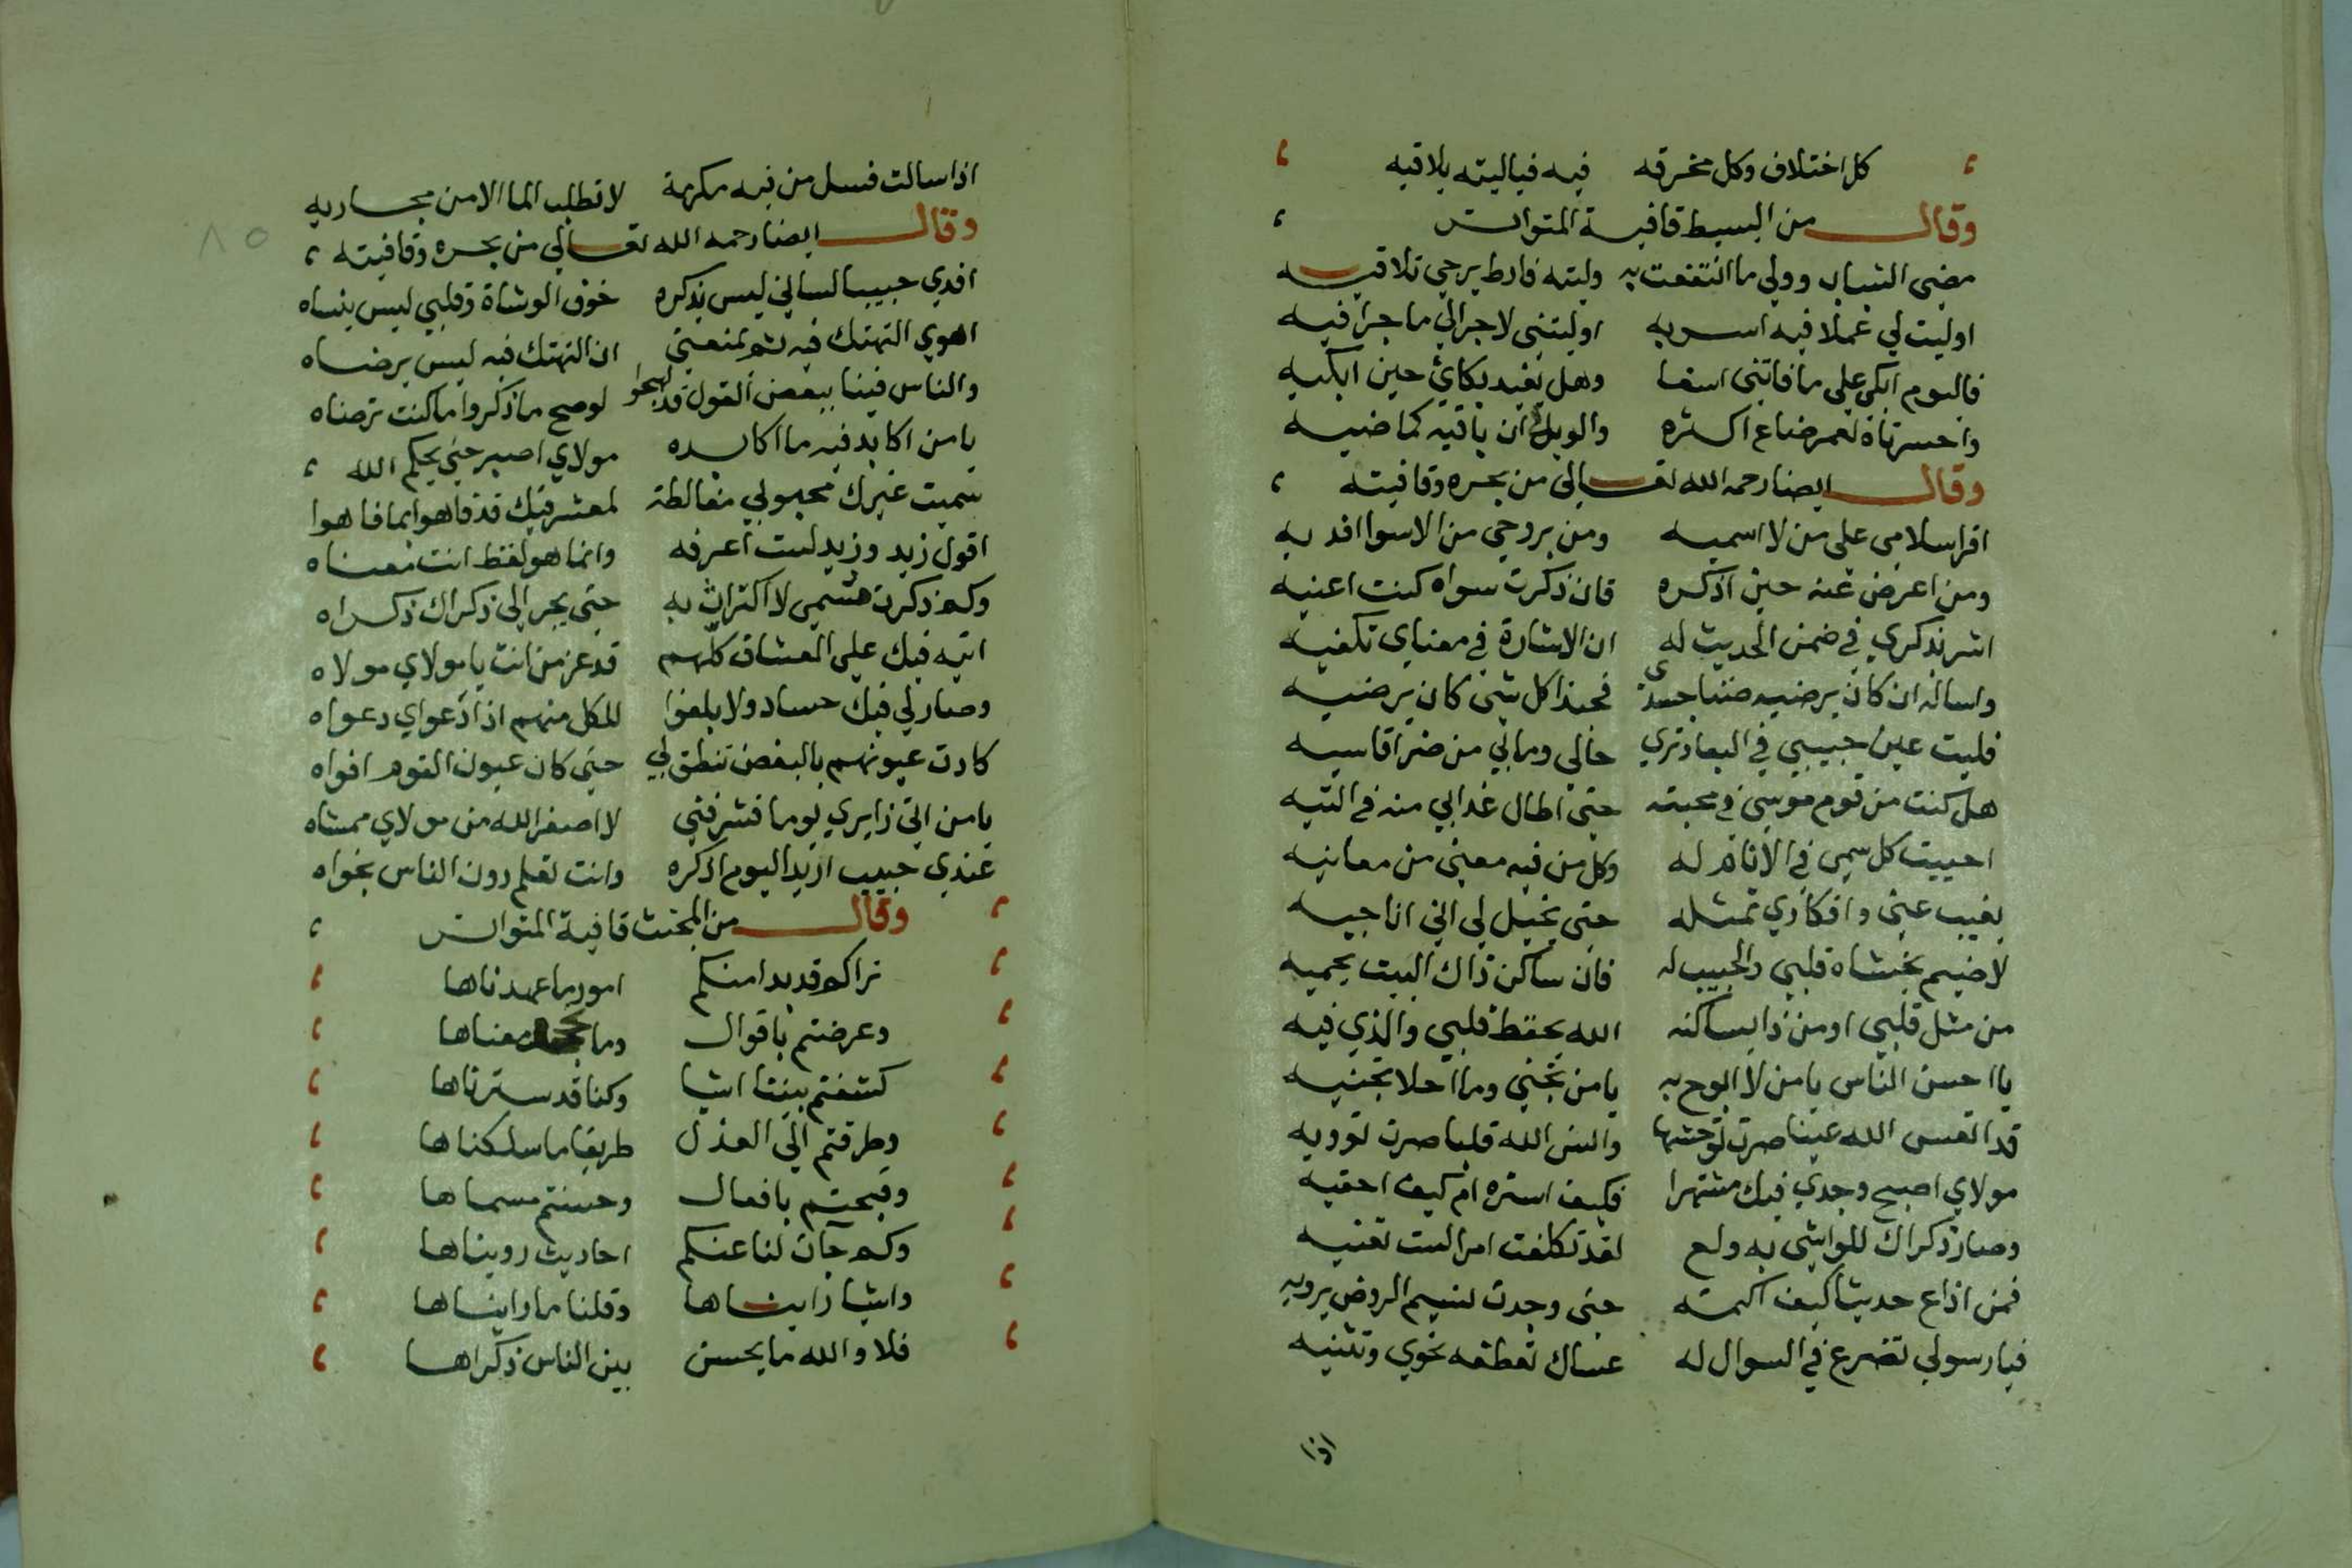 كل اختلاف وكل مخرقه فيه فياليته يلاقيه
وقال من البسيط قافية المتواتر
مضى الشباب وولي ما انتفعت به وليته فارط يرجي تلاقيه
اوليت لي عملا فيه اسر به اوليتني لاجرالي ما جرا فيه
فاليوم ابكي علي ما فاتني اسفا وهل يفيد بكائي حين ابكيه
واحسرتاه لعمر ضاع اكثره والويل ان كان باقيه كماضيه
وقال ايضا رحمه الله تعالي من بحره وقافيته
اقرا سلامي علي من لا اسميه ومن بروحي من الاسوا افديه
ومن اعرض عنه حين اذكره فان ذكرت سواه كنت اعنيه
اشر بذكري في ضمن الحديث له ان الاشارة في معناي تكفيه
واساله ان كان يرضيه ضنا جسدي فحبذا كل شي كان يرضيه
فليت عين حبيبي في البعاد تري حالي وما بي من ضر اقاسيه
هل كنت من قوم موسي في محبته حتي اطال عذابي منه في التيه
احببت كل سمي في الانام له وكل من فيه معني من معانيه
يغيب عني وافكاري تمثله حتي يخيل لي اني اناجيه
لا ضيم يخشاه قلبي والحبيب له فان ساكن ذاك البيت يحميه
من مثل قلبي اومن ذا بساكنه الله يحفظ قلبي والذي فيه
يا احسن الناس يا من لا ابوح به يا من تجني وما احلا تجنيه
قد اتعس الله عينا صرت توحشها والسى الله قلبا صرت تؤويه
مولاي اصبح وجدي فيك مشتهرا فكيف استره ام كيف اخفيه
وصار ذكراك للواشي به ولع لقد تكلفت امرا ليت تعنيه
فمن اذاع حديثا كيف اكتمته حتي وجدت نسيم الروض يرويه
فيا رسولي تضرع في السوال له عساك تعطفه نحوي وتثنيه
اذا
اذا سالت فسل من فيه مكرمة لا تطلب الما الا من مجاريه
وقال ايضا رحمه الله تعالي من بحره وقافيته
٨٥
افدي حبيبا لساني ليس يذكره خوف الوشاة وقلبي ليس ينساه
اهوي التهتك فيه ثم تمنعني ان التهتك فيه ليس يرضاه
والناس فينا ببعض القول قد لهجوا لو صح ما ذكروا ما كنت ترضاه
يا من اكابد فيه ما اكابده مولاي اصبر حتي يحكم الله
سميت غيرك محبوبي مغالطة لمعشر فيك قد فاهوا بما فاهوا
اقول زيد وزيد لست اعرفه وانما هو لفظ انت معناه
وكم ذكرت مسمي لا اكتراث به حتي يجر الي ذكراك ذكراه
اتيه فيك علي العشاق كلهم قد عز من انت يا مولاي مولاه
وصار لي فيك حساد ولا بلغوا للكل منهم اذا دعواي دعواه
كادت عيونهم بالبغض تنطق لي حتي كان عيون القوم افواه
يا من اتي زايري يوما فشرفني لا اصغر الله من مولاي ممشاه
عندي حديث اريد اليوم اذكره وانت تعلم دون الناس نجواه
وقال من المجتث قافية المتواتر
نراكم قد بدا منكم امور ما عهدناها
وعرضتم باقوال وما معناها
كشفتم بيننا اشيا وكنا قد سترناها
وطرقتم الي العذل طريقا ما سلكناها
وقبحتم بافعال وحسنتم مسماها
وكم جات لنا عنكم احاديث رويناها
واشيا رايناها وقلنا ما رايناها
فلا والله ما يحسن بين الناس ذكراها